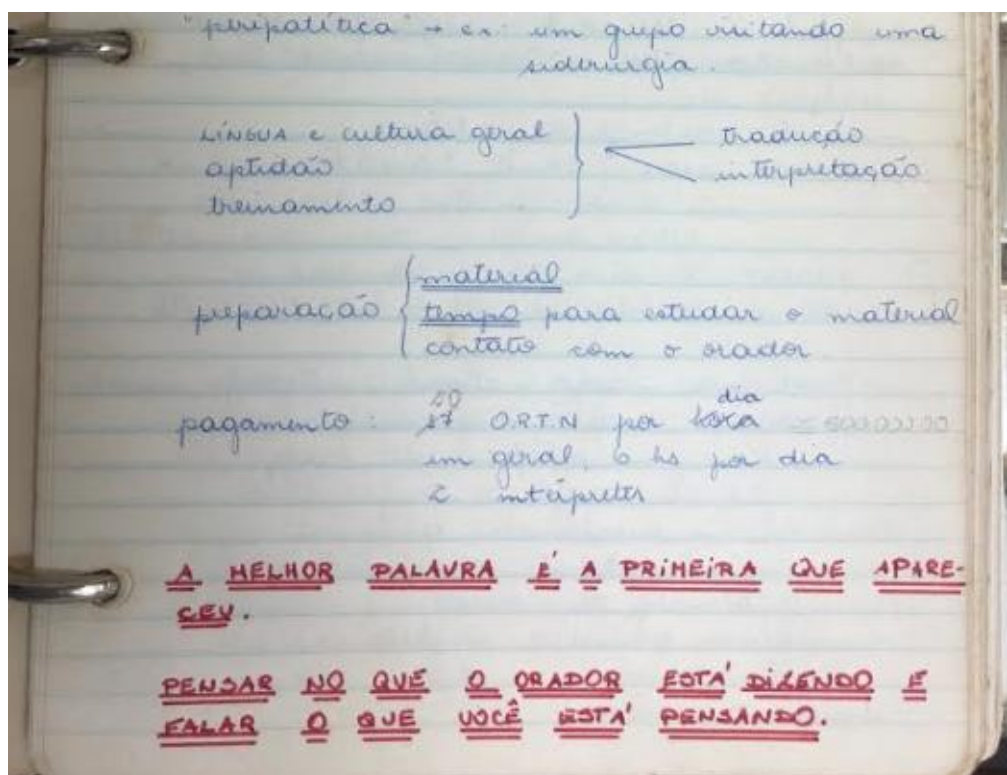 "peripatítica" → ex: um grupo visitando uma
siderurgia.
LÍNGUA e cultura geral
aptidão
treinamento
tradução
interpretação
preparação
material
tempo para estudar o material
contato com o orador
dia
pagamento: O.R.T.N por hora
em geral, 6 hs por dia
2 intérpretes
A MELHOR PALAVRA É A PRIMEIRA QUE APARE-
CEU.
PENSAR NO QUE O ORADOR ESTÁ DIZENDO E
FALAR O QUE VOCÊ ESTÁ PENSANDO.